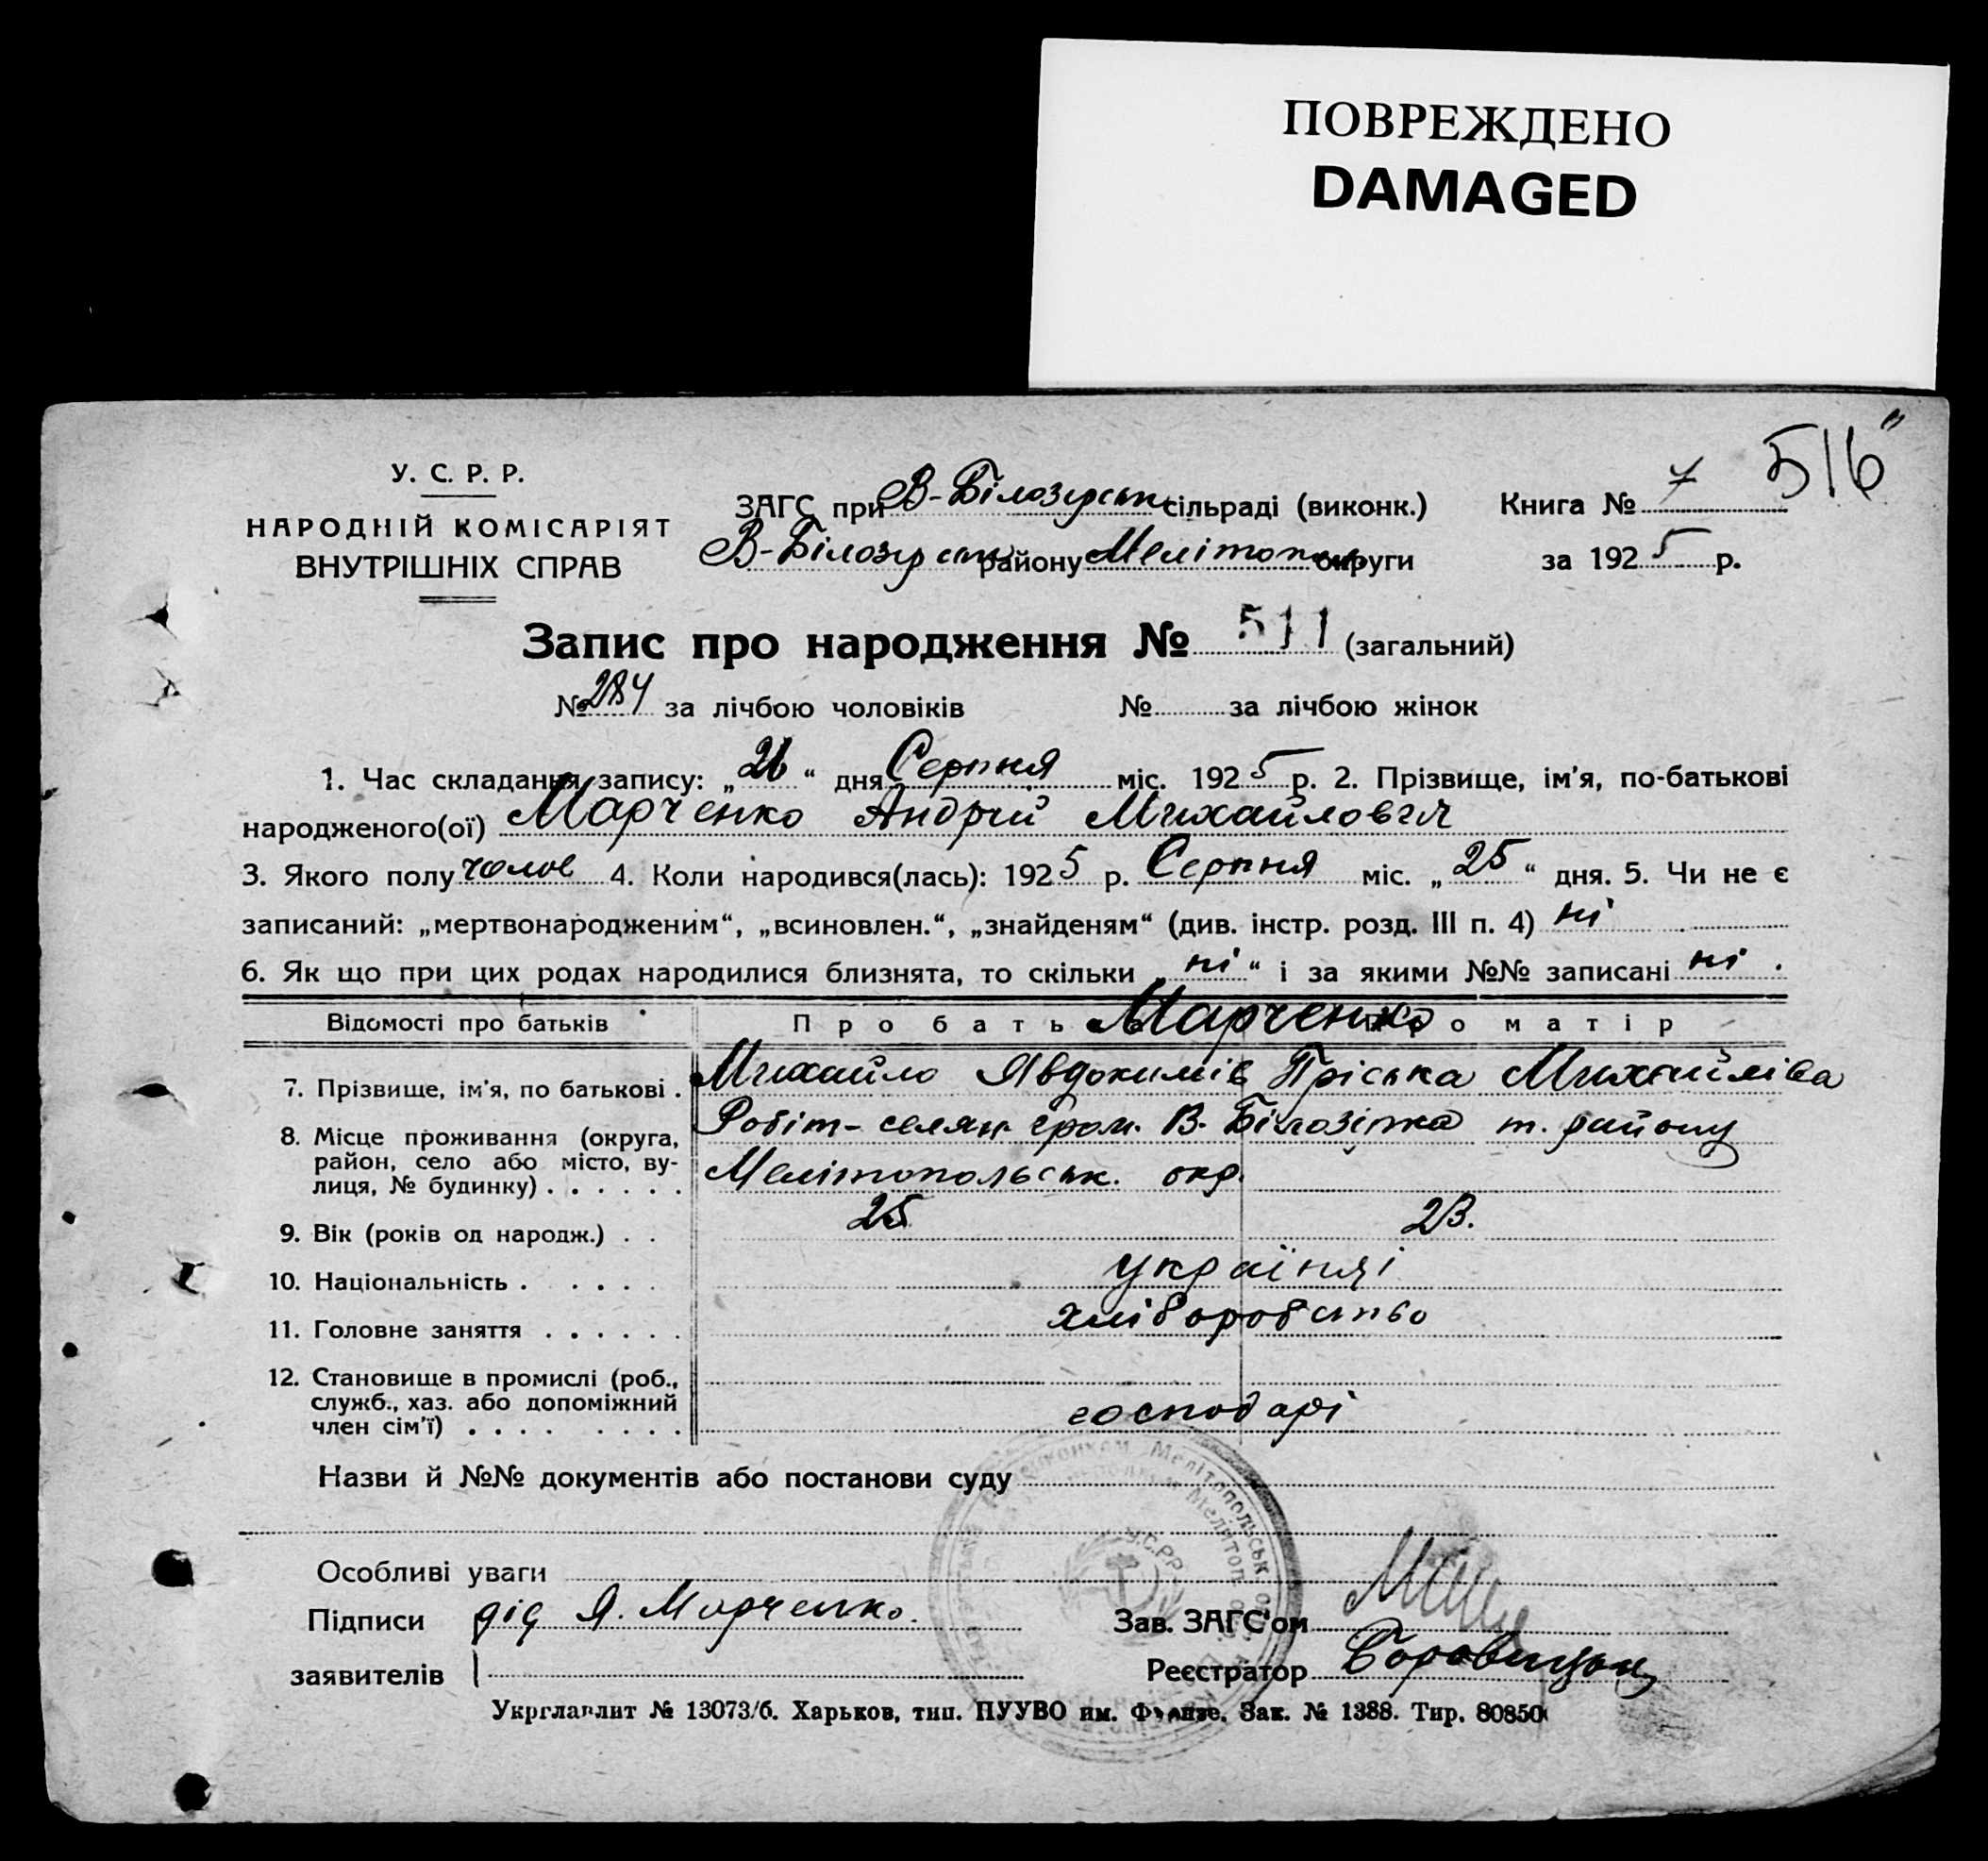 ПОВРЕЖДЕНО
DAMAGED
516"
У. С. Р. Р.
НАРОДНІЙ КОМІСАРІЯТ
ВНУТРІШНІХ СПРАВ
ЗАГС при В-Білозірськ сільраді (виконк.) Книга № 7
В-Білозірськ району Мелітопол округи за 1925 р.
Запис про народження № 511 (загальний)
№ 284 за лічбою чоловіків № за лічбою жінок
1. Час складання запису: „26“ дня Серпня міс. 1925 р. 2. Прізвище, ім'я, по-батькові
народженого(ої) Марченко Андрій Михайлович
3. Якого полу чолов 4. Коли народився(лась): 1925 р. Серпня міс. „25“ дня. 5. Чи не є
записаний: „мертвонародженим“, „всиновлен.“, „знайденям“ (див. інстр. розд. III п. 4) ні
6. Як що при цих родах народилися близнята, то скільки „ні“ і за якими №№ записані ні.
Відомості про батьків Про батька Марченко Про матір
7. Прізвище, ім'я, по батькові . Михайло Явдокимів Пріська Михайліва
8. Місце проживання (округа, Робіт-селян. гром. В. Білозірка т. району
район, село або місто, ву- Мелітопольськ. окр.
лиця, № будинку) . . . . . .
9. Вік (років од народж.) . . 25 23.
10. Національність . . . . . українці
11. Головне заняття . . . . . . хліборобство
12. Становище в промислі (роб.,
служб., хаз. або допоміжний
член сім'ї) . . . . . . . . господарі
Назви й №№ документів або постанови суду
Особливі уваги
Підписи дід Я. Марченко. Зав. ЗАГС'ом
заявителів Реєстратор
Укрглавлит № 13073/б. Харьков, тип. ПУУВО им. Фрунзе. Зак. № 1388. Тир. 80850
У.С.Р.Р.
Мелітопольськ